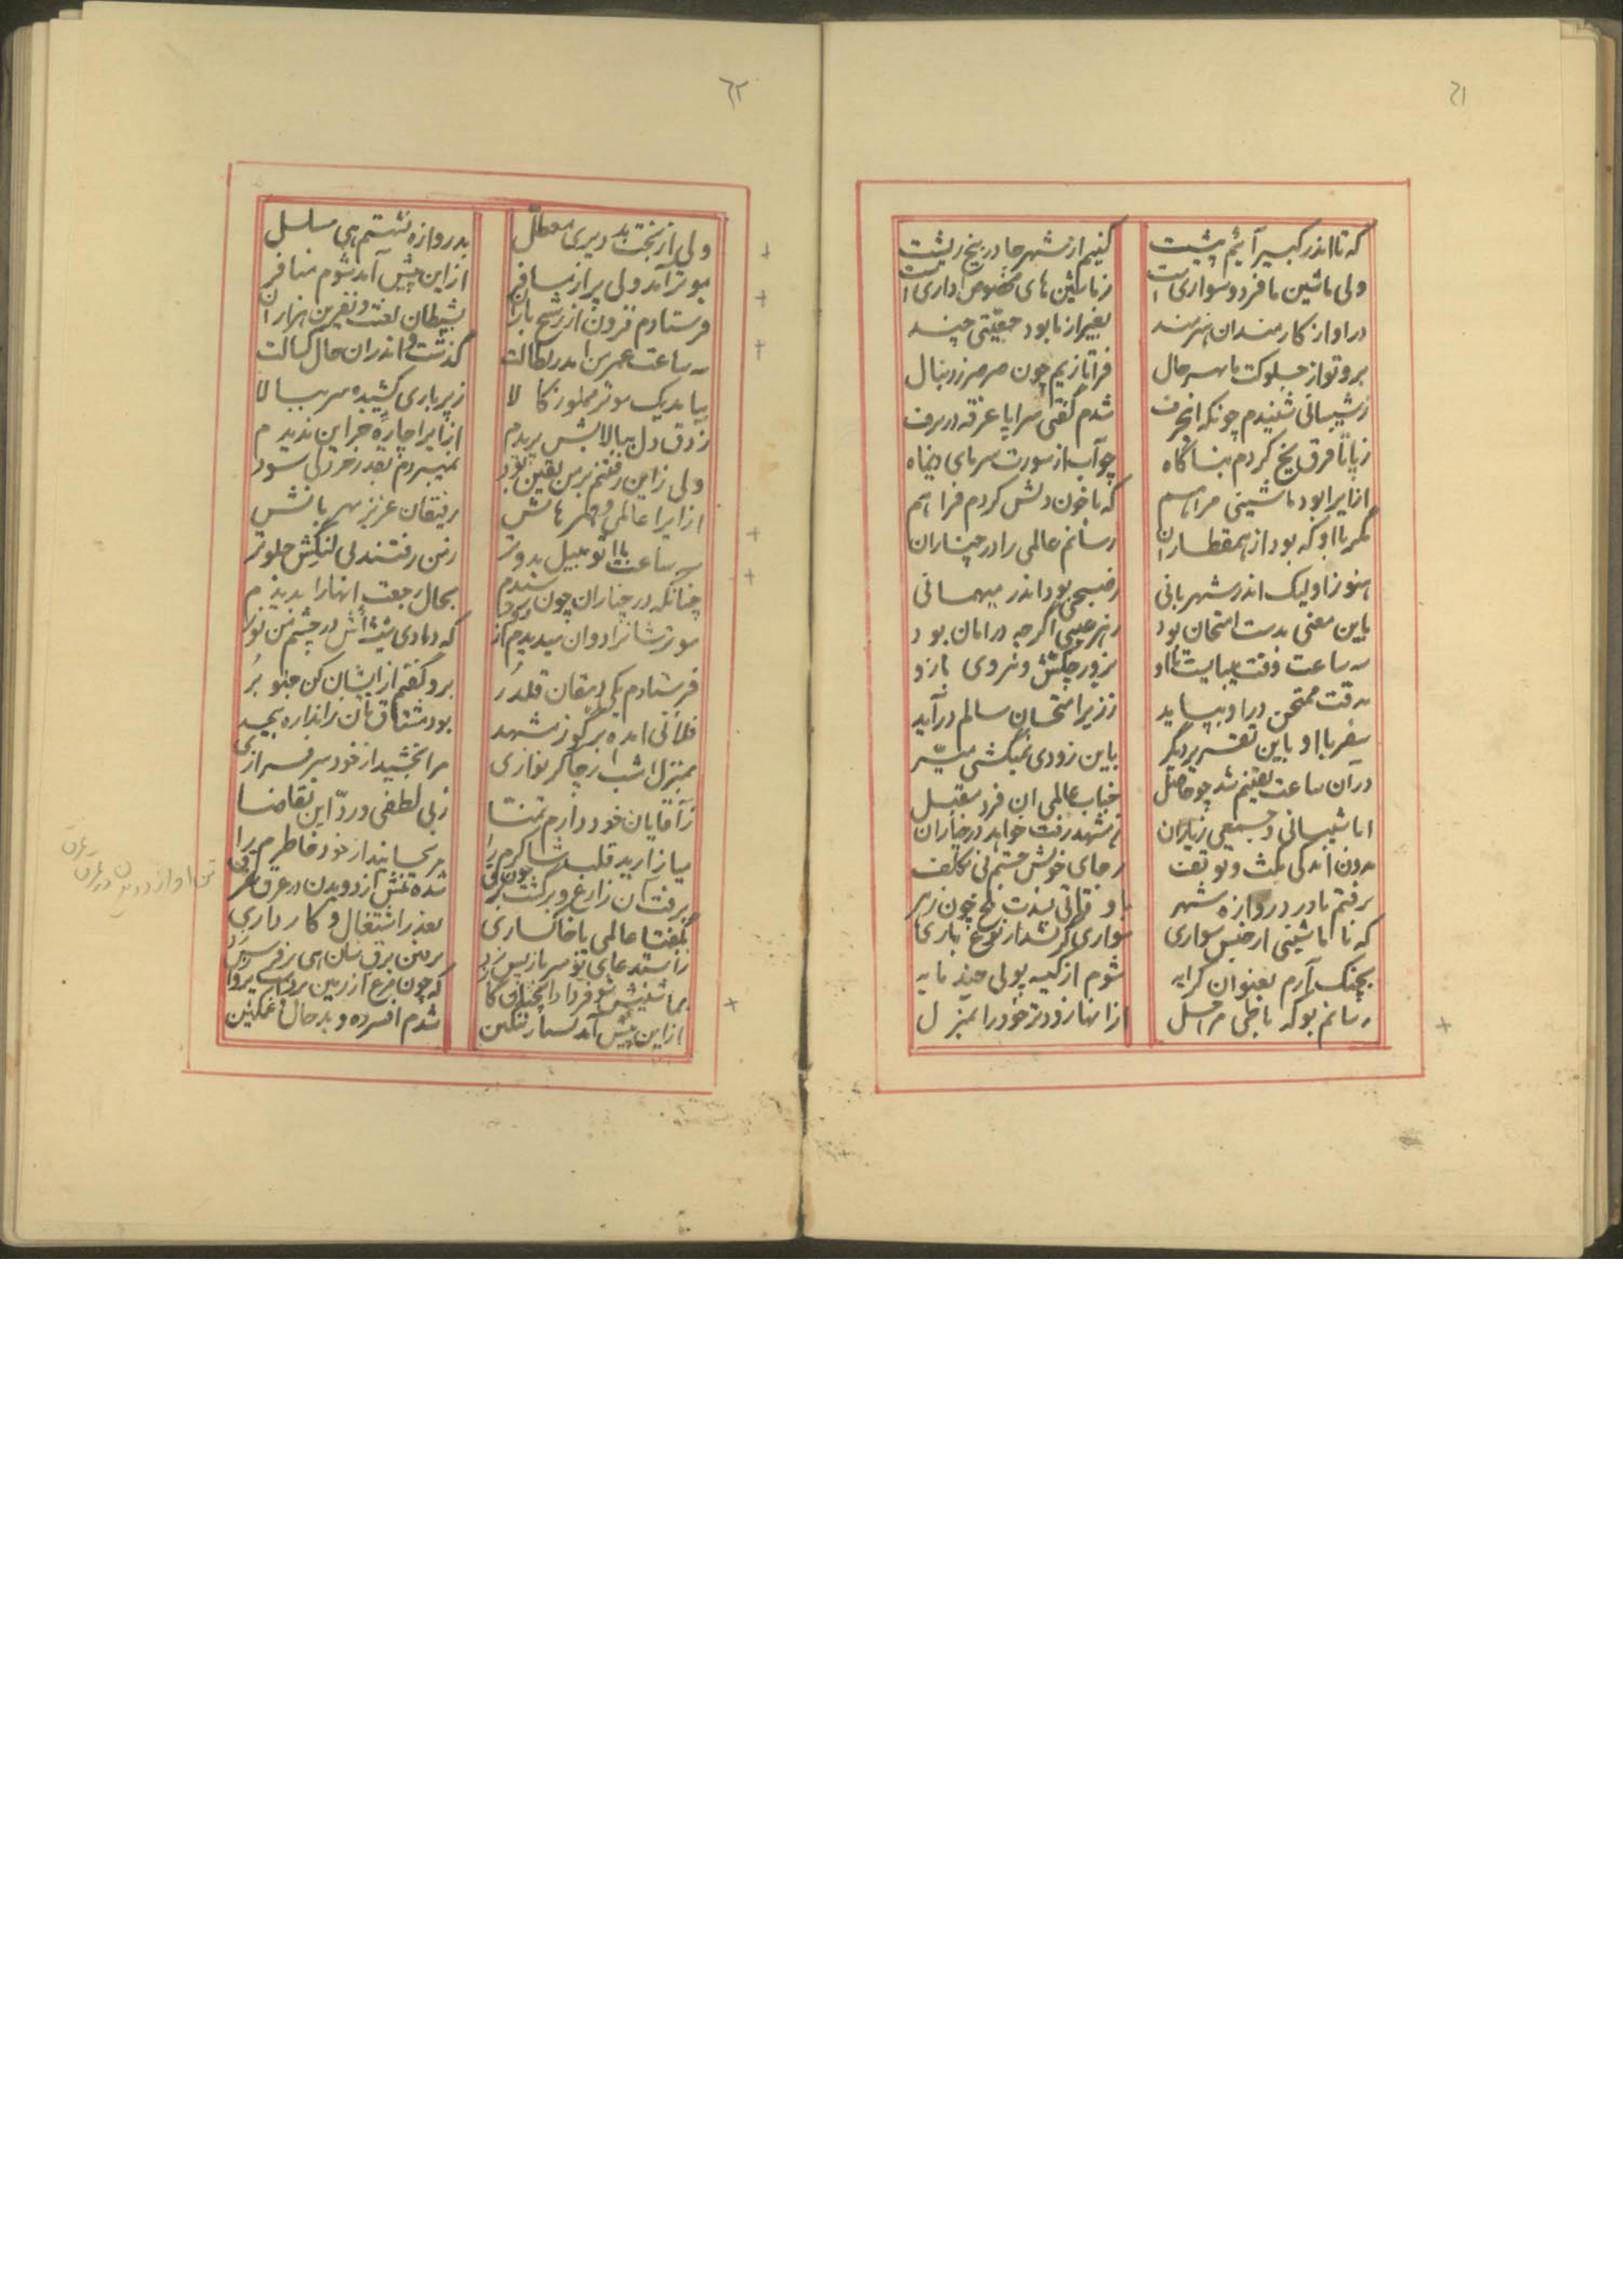 ٦١
که تا اندر کبیر آئیم پشت
کنیم از شهر جا در بیخ رشت
ولی ماشین ما فرد و سواری است
ز ماشین های مخصوص اداری است
در او از کارمندان هنرمند
بغیر از ما بود جمعیتی چند
برو تو از جلوکت ما بهر حال
فرا تازیم چون صرصر ز دنبال
ز شیبانی شنیدم چونکه این حرف
شدم گفتی سراپا غرقه در برف
ز پا تا فرق یخ کردم بناگاه
چو آب از سورت سرمای دیماه
از ایرا بود ماشینی مراهم
که با خون دلش کردم فراهم
مگر با او که بود از همقطاران
رسانم عالمی را در چناران
هنوز او لیک اندر شهربانی
صبحی بود اندر میهمانی
باین معنی بدست امتحان بود
ز هر عیبی اگر چه در امان بود
سه ساعت وقت میبایست تا او
بزور چکش و نیروی بازو
بدقت ممتحن در او بپیماید
ز زیر امتحان سالم درآید
سفر با او باین تقریر دیگر
باین زودی نمیگشتی میسر
در ان ساعت یقینم شد چو حاصل
جناب عالمی ان فرد مقبل
ابا شیبانی و جمعی ز یاران
ز مشهد رفت خواهد در چناران
بدون اندکی مکث و توقف
ز جای خویش جستم بی تکلف
برفتم تا در دروازه شهر
با وقاتی بدت تلخ چون زهر
که تا ماشینی از جنس سواری
سواری گر نشد از نوع باری
بچنگ آرم بعنوان کرایه
شوم از کیسه پولی چند مایه
رسانم بو که با طی مراحل
از انها زودتر خود را بمنزل
٦٢
ولی از بخت بد دیری معطل
بدروازه نشستم هی مسلسل
موتر آمد ولی پر از مسافر
از این پیش آمد شوم منافر
فرستادم فزون از رشح باران
بشیطان لعنت و نفرین هزاران
سه ساعت عمر من اندر بطالت
گذشت و اندران حال کسالت
بیامد یک موتر مملو ز کالا
ز پر باری کشیده سر ببالا
ز ذوق دل ببالایش پریدم
از ایرا چاره جز این ندیدم
ولی زاین رفتنم بر من یقین بود
نمیبردم بقدر خردلی سود
از ایرا عالمی و همرهانش
رفیقان عزیز مهربانش
سه ساعت با اتومبیل بدوتر
ز من رفتند بی لنگش جلوتر
چنانکه در چناران چون رسیدم
بحال رجعت انها را بدیدم
موترشانرا دوان میدیدم از
که دمادی مینشست‌اش در چشم من نور
فرستادم یکی دهقان قلدر
برو گفتم از ایشان کن جلو بر
فلانی امده بر گو ز مشهد
بود مشتاق تان ز اندازه بیحد
بمنزل امشب از چاکر نوازی
مرا بخشید از خود سرفرازی
ز آقایان خود دارم تمنا
ز بی لطفی و رد این تقاضا
میازارید قلب شاکرم را
مرنجانید از خود خاطرم را
برفت آن زارع و برگشت چون برق
شده تنش از دویدن در عرق غرق
بگفتا عالمی با خاکساری
بعذر اشتغال و کارداری
ز استدعای تو سر باز پس زد
بماشینش شوفر داد انچنان گاز
که چون مرغ از زمین برداشت پرواز
از این پیش آمد بسیار ننگین
شدم افسرده و بد حال و غمگین
تن او از دویدن در عرق غرق